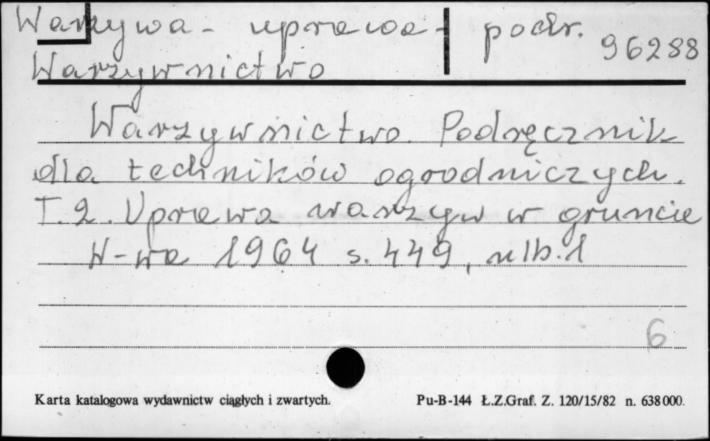 Warzywa - uprawa - podr.
96288
Warzywnictwo
Warzywnictwo. Podręcznik
dla techników ogrodniczych.
T. 2. Uprawa warzyw w gruncie
W-wa 1964 s. 449, nlb. 1
6
Karta katalogowa wydawnictw ciągłych i zwartych. Pu-B-144 Ł.Z.Graf. Z. 120/15/82 n. 638000.